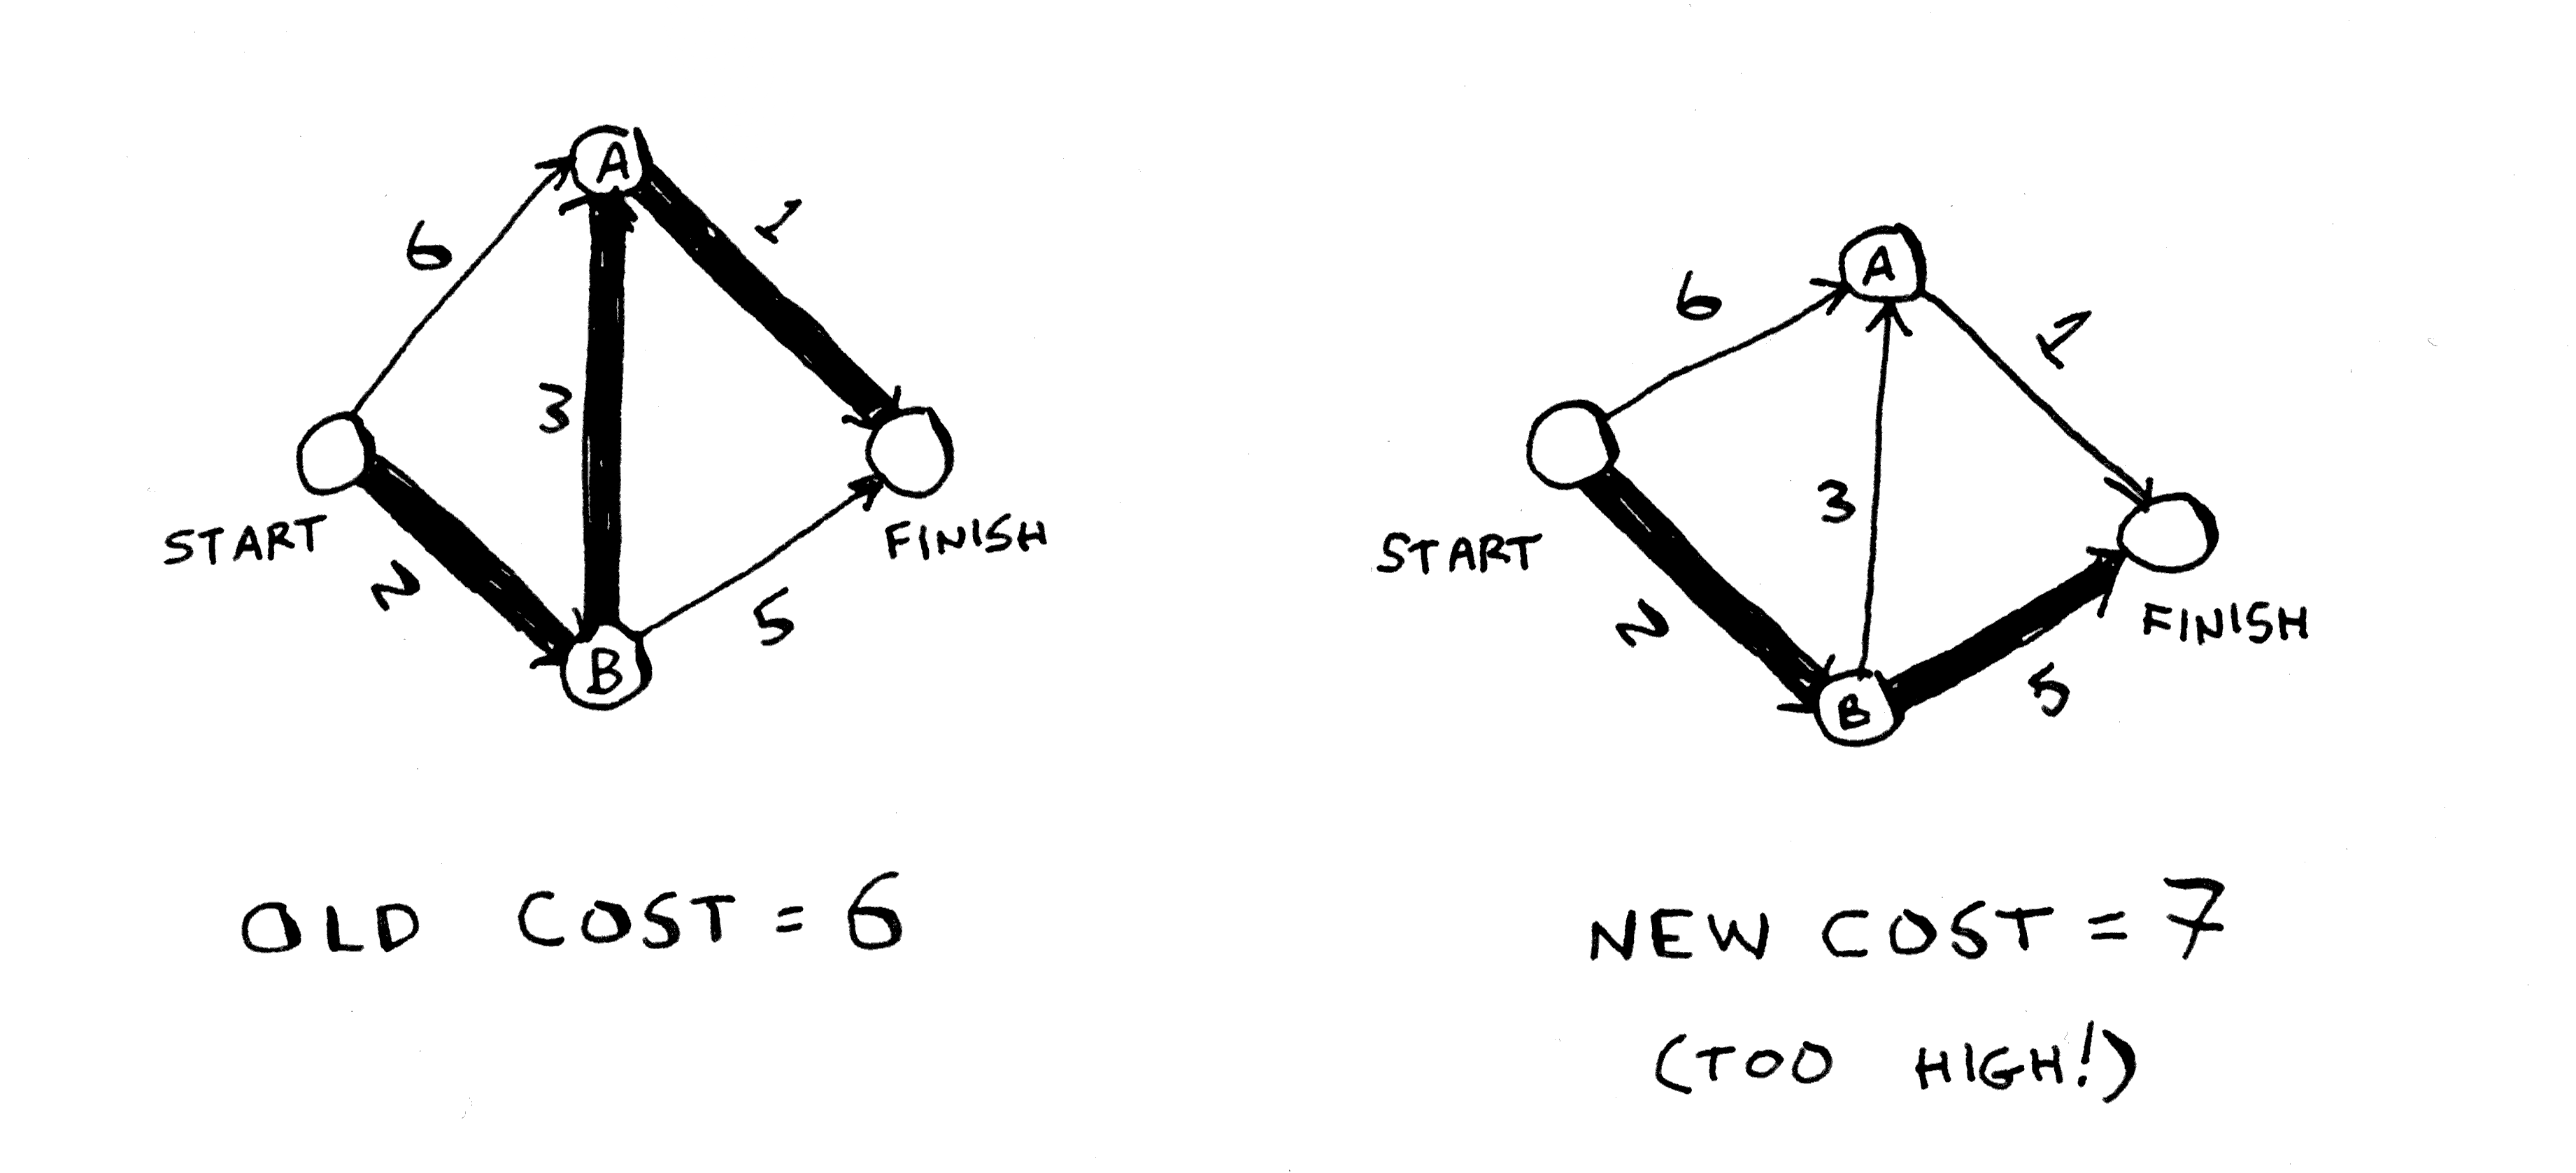 A
6
1
3
START
FINISH
2
B
5
OLD COST = 6
A
6
1
3
START
FINISH
2
B
5
NEW COST = 7
(TOO HIGH!)